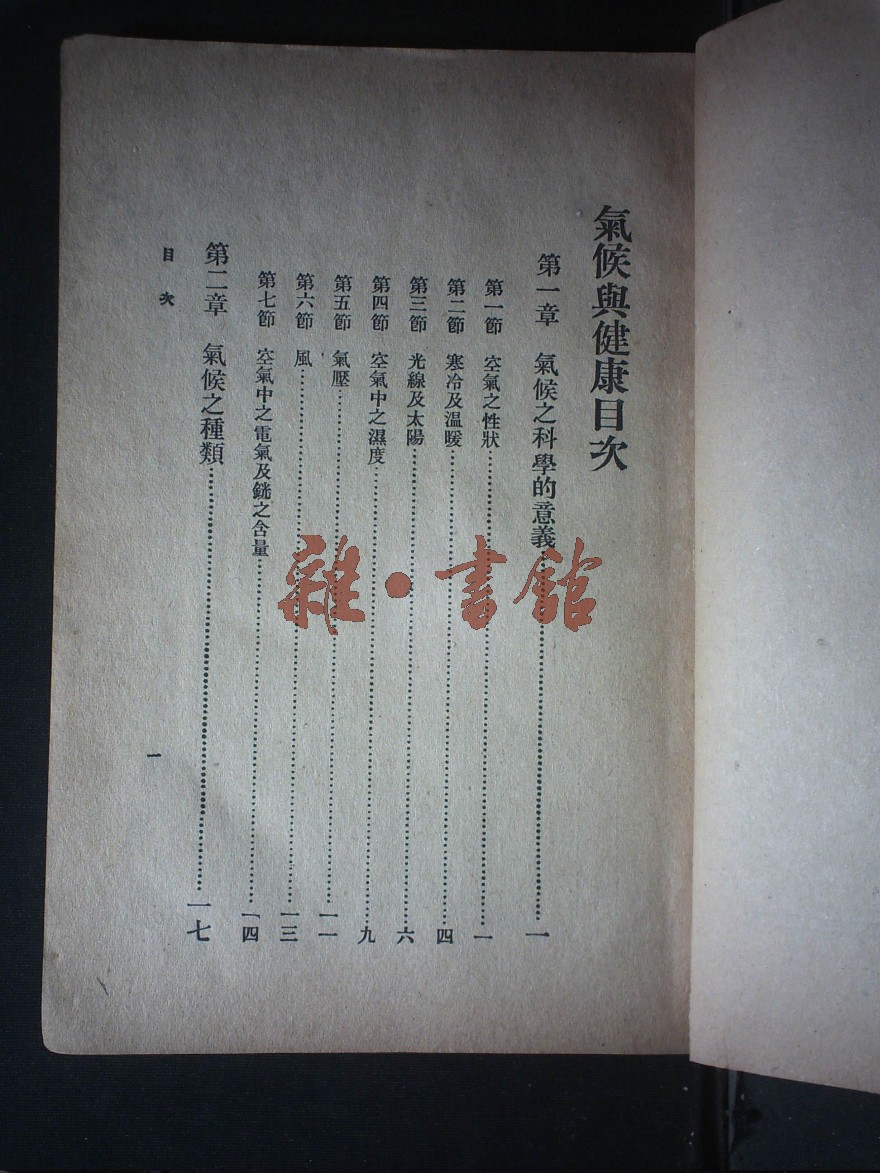 氣候與健康目次
第一章 氣候之科學的意義……一
第一節 空氣之性狀……一
第二節 寒冷及温暖……四
第三節 光線及太陽……六
第四節 空氣中之濕度……九
第五節 氣壓……一一
第六節 風……一三
第七節 空氣中之電氣及銧之含量……一四
第二章 氣候之種類……一七
目次
一
雜·書館